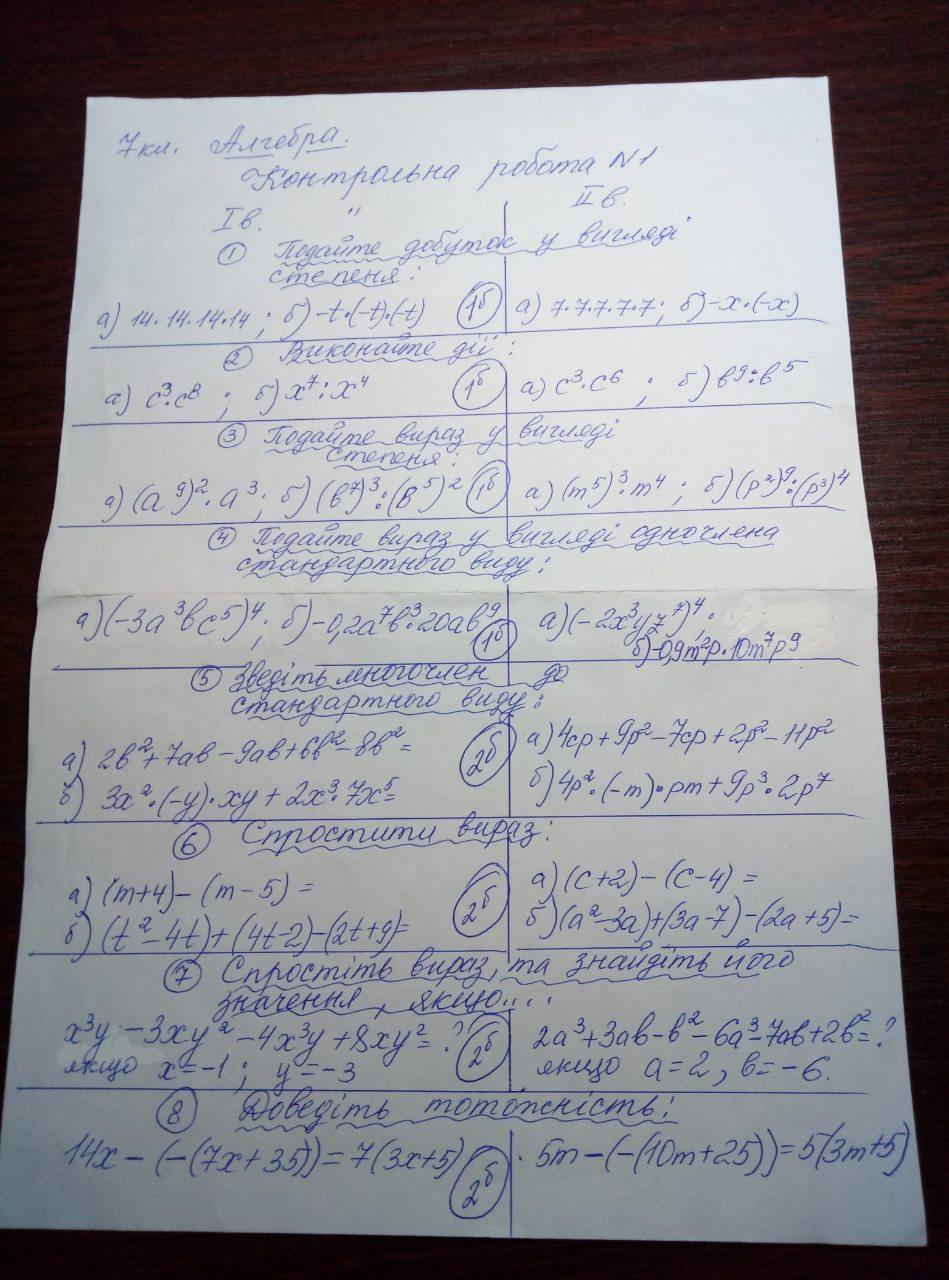 7 кл. Алгебра.
Контрольна робота N1
I в. " II в.
① Подайте добуток у вигляді
степеня:
а) 14·14·14·14 ; б) -t·(-t)·(-t) 1б а) 7·7·7·7·7; б) -x·(-x)
② Виконайте дії:
а) c³·c⁸ ; б) x⁷:x⁴ 1б а) c³·c⁶ ; б) b⁹:b⁵
③ Подайте вираз у вигляді
степеня:
а) (a⁹)²·a³; б) (b⁷)³:(b⁵)² 1б а) (m⁵)³·m⁴ ; б) (p²)⁹:(p³)⁴
④ Подайте вираз у вигляді одночлена
стандартного виду:
а) (-3a³bc⁵)⁴; б) -0,2a⁷b³·20ab⁹ 1б а) (-2x³yz⁷)⁴;
б) -0,9m²p·10m⁷p⁹
⑤ Зведіть многочлен до
стандартного виду:
а) 2b²+7ab-9ab+6b²-8b²= 2б а) 4cp+9p²-7cp+2p²-11p²
б) 3x²·(-y)·xy+2x³·7x⁵= б) 4p²·(-m)·pm+9p³·2p⁷
⑥ Спростити вираз:
а) (m+4)-(m-5)= 2б а) (c+2)-(c-4)=
б) (t²-4t)+(4t-2)-(2t+9)= б) (a²-3a)+(3a-7)-(2a+5)=
⑦ Спростіть вираз, та знайдіть його
значення, якщо....
x³y-3xy²-4x³y+8xy²=? 2б 2a³+3ab-b²-6a³-7ab+2b²=?
якщо x=-1; y=-3 якщо a=2, b=-6.
⑧ Доведіть тотожність:
14x-(-(7x+35))=7(3x+5) 2б 5m-(-(10m+25))=5(3m+5)